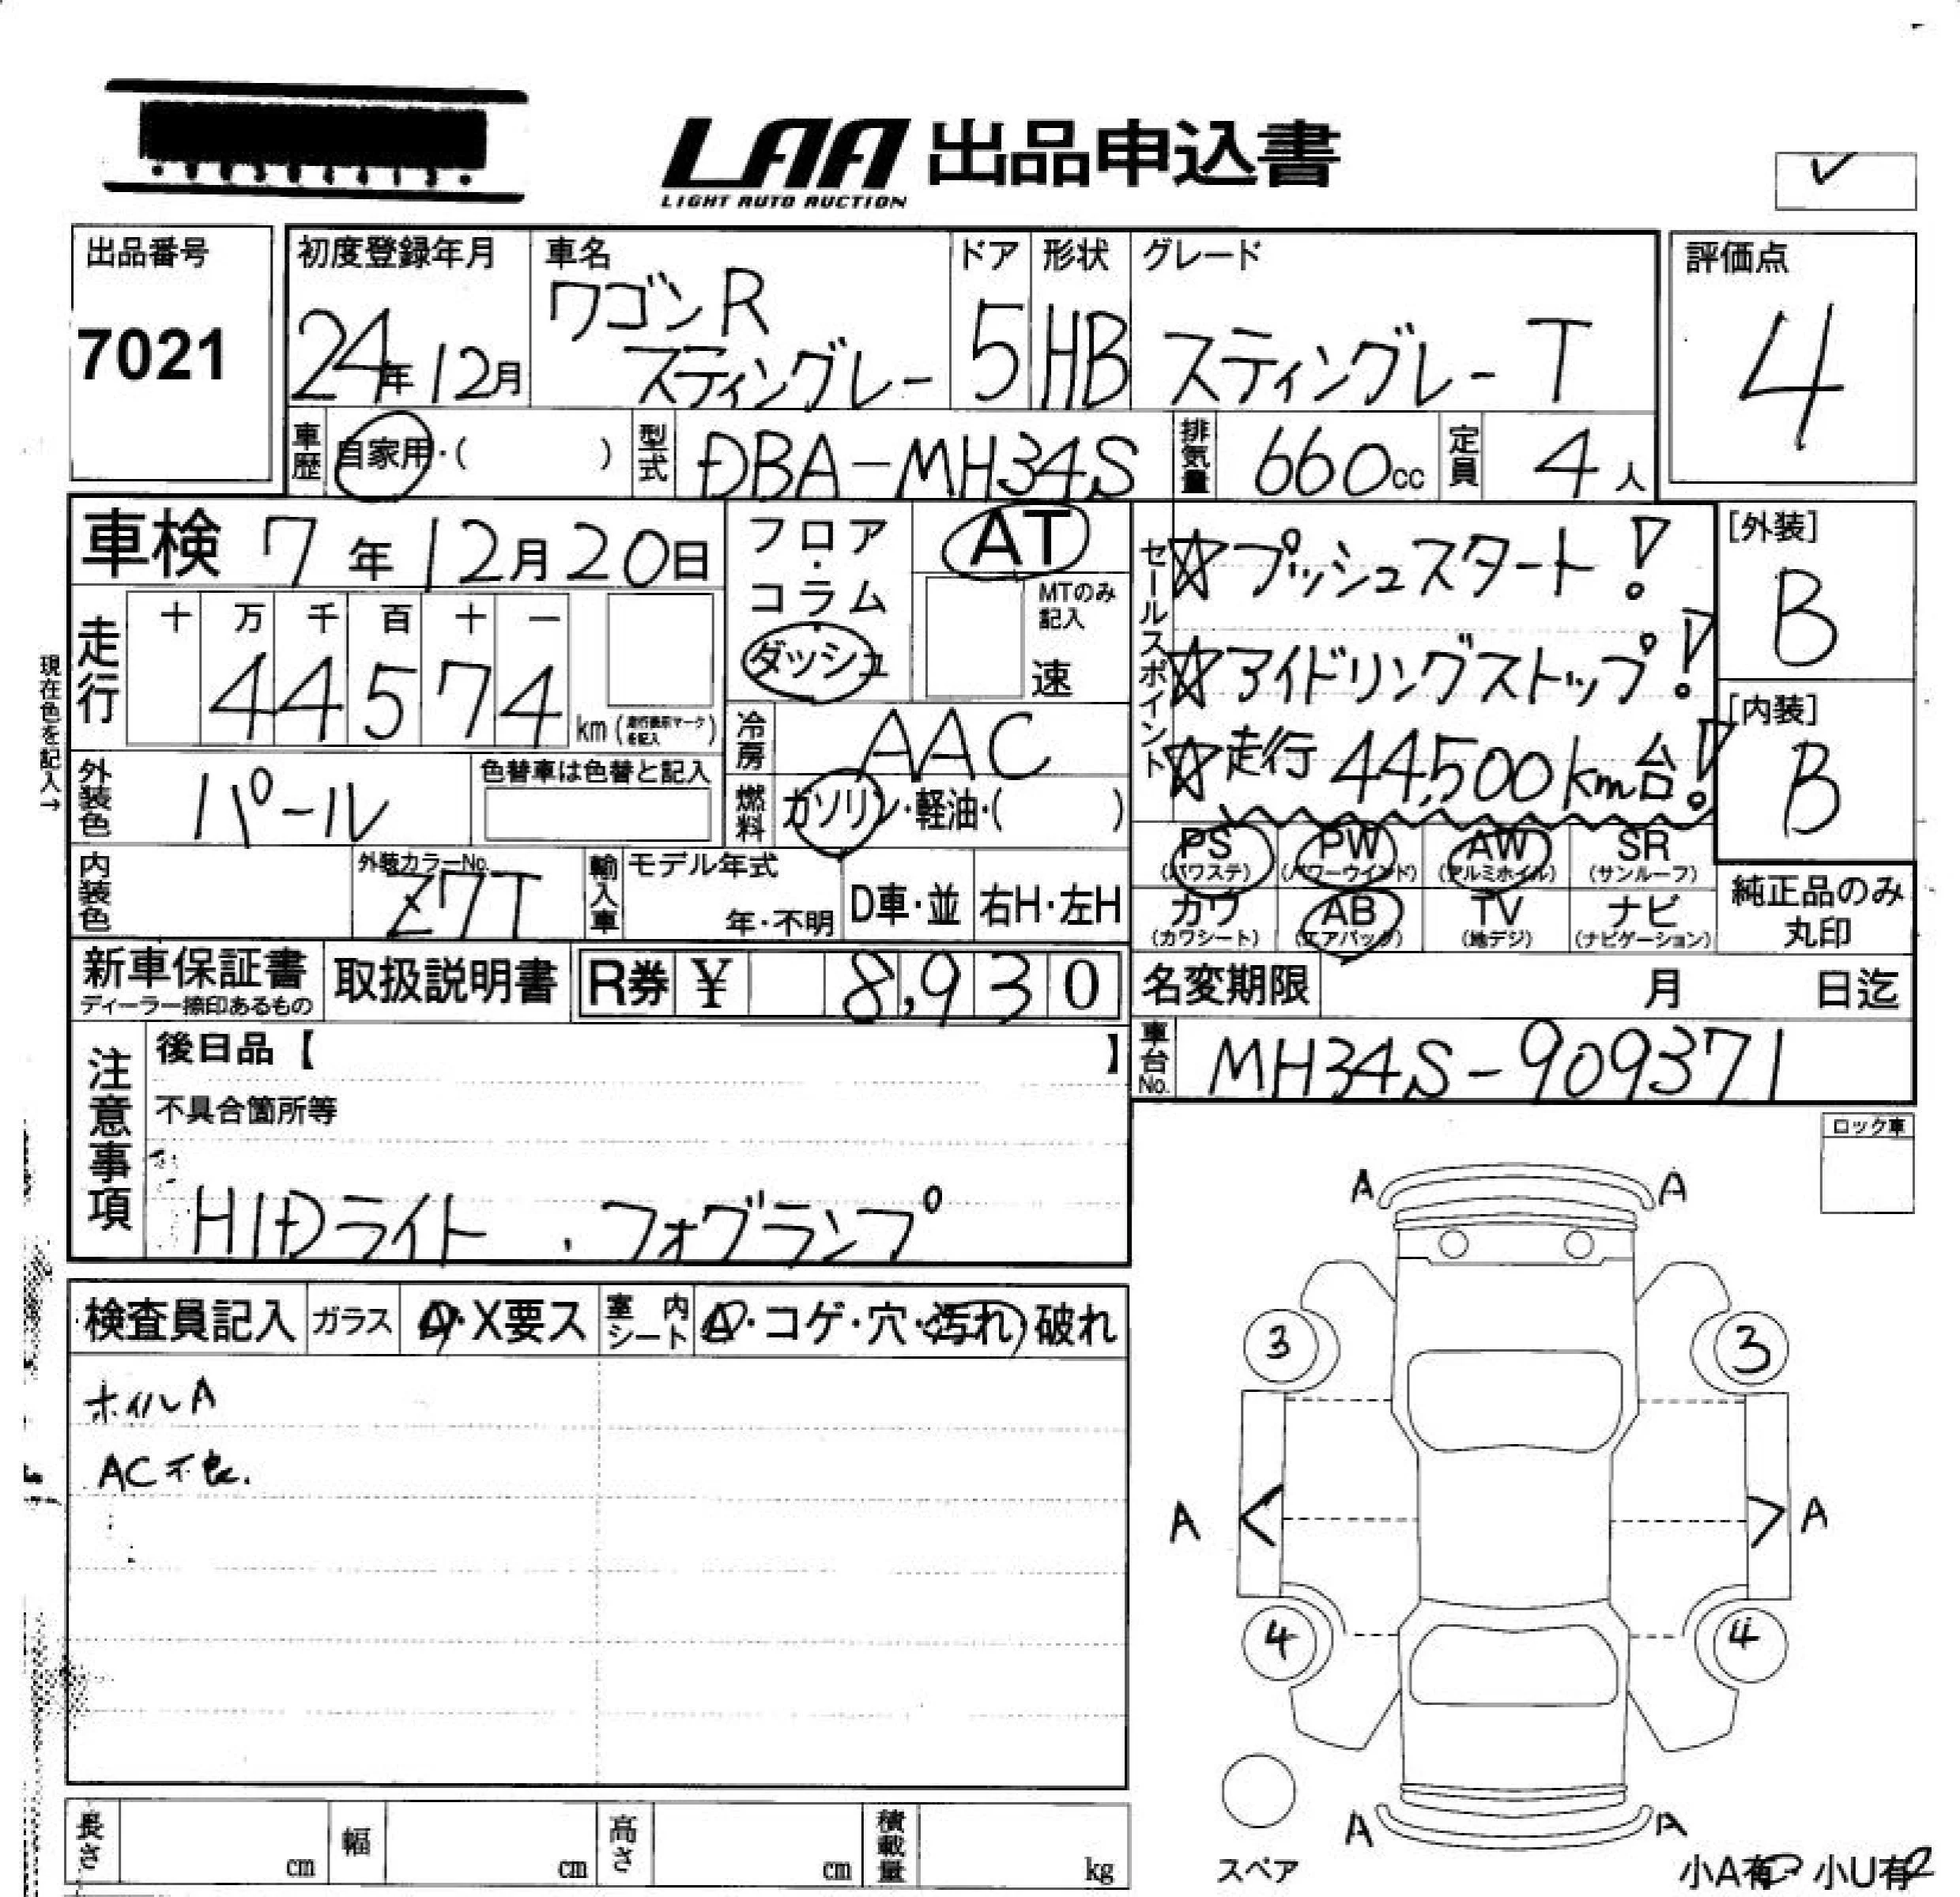 LAA 出品申込書
LIGHT AUTO AUCTION
出品番号
7021
初度登録年月
24年12月
車名
ワゴンR
スティングレー
ドア
5
形状
HB
グレード
スティングレー T
評価点
4
車歴 自家用・( )
型式 DBA-MH34S
排気量 660cc
定員 4人
車検 7年12月20日
走行
十 万 千 百 十 一
4 4 5 7 4 km (走行表示マークを記入)
現在色を記入→
フロア・コラム
ダッシュ
AT
MTのみ記入
速
冷房 AAC
燃料 ガソリン・軽油・( )
外装色 パール
色替車は色替と記入
内装色
外装カラーNo.
Z7T
輸入車
モデル年式
年・不明
D車・並
右H・左H
セールスポイント
☆プッシュスタート!
☆アイドリングストップ!
☆走行 44,500km台!
[外装]
B
[内装]
B
PS (パワステ)
PW (パワーウインド)
AW (アルミホイル)
SR (サンルーフ)
カワ (カワシート)
AB (エアバック)
TV (地デジ)
ナビ (ナビゲーション)
純正品のみ
丸印
新車保証書
ディーラー捺印あるもの
取扱説明書
R券 ¥ 8,930
名変期限 月 日迄
車台No. MH34S-909371
注意事項
後日品【 】
不具合箇所等
HIDライト . フォグランプ
ロック車
検査員記入
ガラス A・X要ス
室内シート A・コゲ・穴・汚れ 破れ
ホイルA
AC不良.
A A
3 3
A A
4 4
A A
スペア
小A有 小U有
長さ cm
幅 cm
高さ cm
積載量 kg